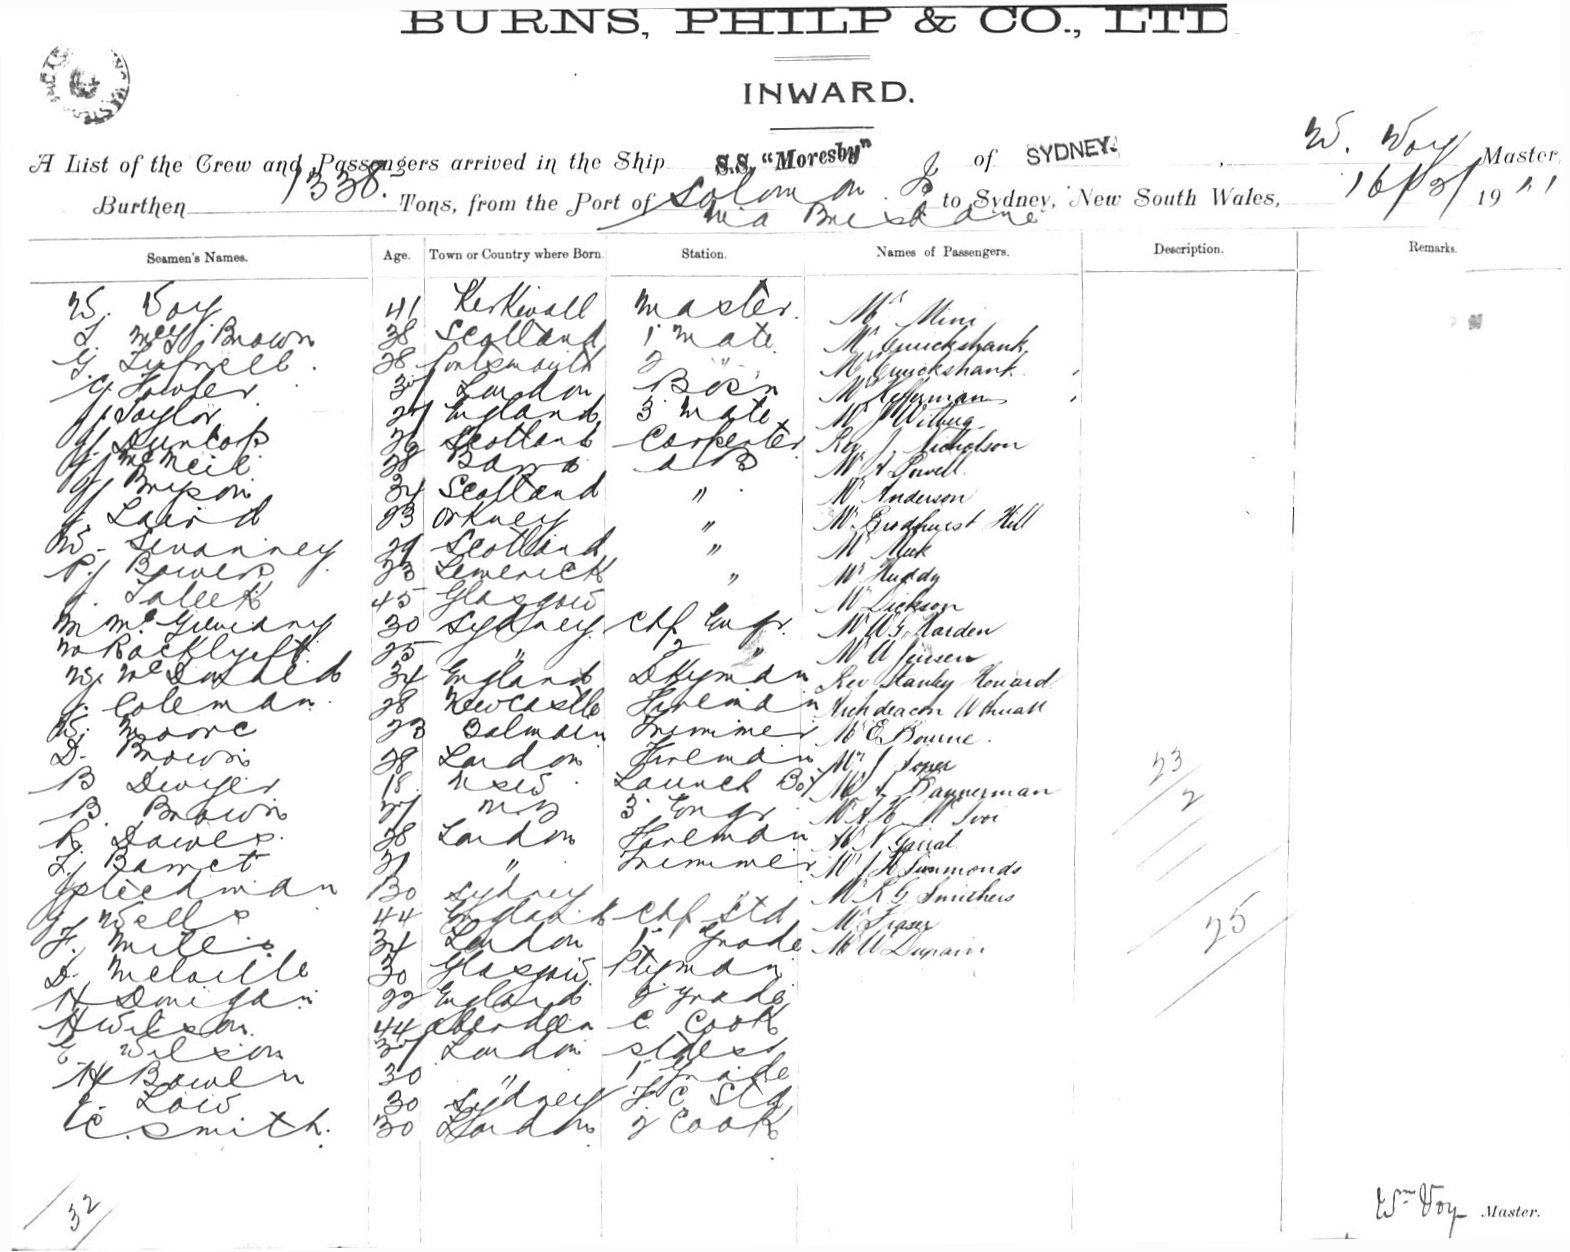 BURNS, PHILP & CO., LTD
INWARD.
A List of the Crew and Passengers arrived in the Ship S.S. "Moresby" of SYDNEY. , W. Voy Master,
Burthen 1338. Tons, from the Port of Solomon Is to Sydney, New South Wales, 16/3/1911
via Brisbane
Seamen's Names. Age. Town or Country where Born. Station. Names of Passengers. Description. Remarks.
W. Voy 41 Kirkwall Master. Mr Mini
Brown 38 Scotland 1 mate Mr Cruickshank
G. 28 Portsmouth 2 " Mrs Cruickshank
Fowler London Bos'n Mr Heffernan
Taylor England 3 mate Mr J Wilburg
Dunlop Scotland Carpenter Rev. J. Nicholson
McNeil 28 Barra A B Mr A Powell
Bryson 34 Scotland " Mr Anderson
Laird 23 Orkney " Mr Brodhurst Hill
W. Scotland " Mr
P. Bowers 23 Limerick " Mr Huddy
45 Glasgow Mr Dickson
M. 30 Sydney Chf Engr. Mr W G Harden
25 " 2 " Mr A Jensen
McDonald 34 England Dkyman Rev Stanley Howard
J. Coleman 28 Newcastle Fireman Archdeacon
W. Moore 23 Balmain Trimmer Mr E Bourne.
D. Brown 28 London Fireman Mr J Jones
B Dwyer 18 NSW Launch Boy Mr A Bannerman
B. Brown 27 3 Engr Mr A H
R. Dawes. 28 London Fireman Mr N
Barnet " Trimmer Mr J H Simmonds
Steedman 30 Sydney " Mr R G Smithers
G. Wells 44 England Chf Std Mr Fraser
F. Mills 34 London 1st Grade Mr W Dupain
D. Melville 30 Glasgow Ptyman
H Donigan 22 England 2 Grade
H Wilson. 44 Aberdeen C. Cook
Wilson London Stdess
H Bowen 30 " 1st Grade
Low 30 Sydney F C Std
C. Smith. 30 London 2 Cook
23
2
25
32
Wm Voy Master.